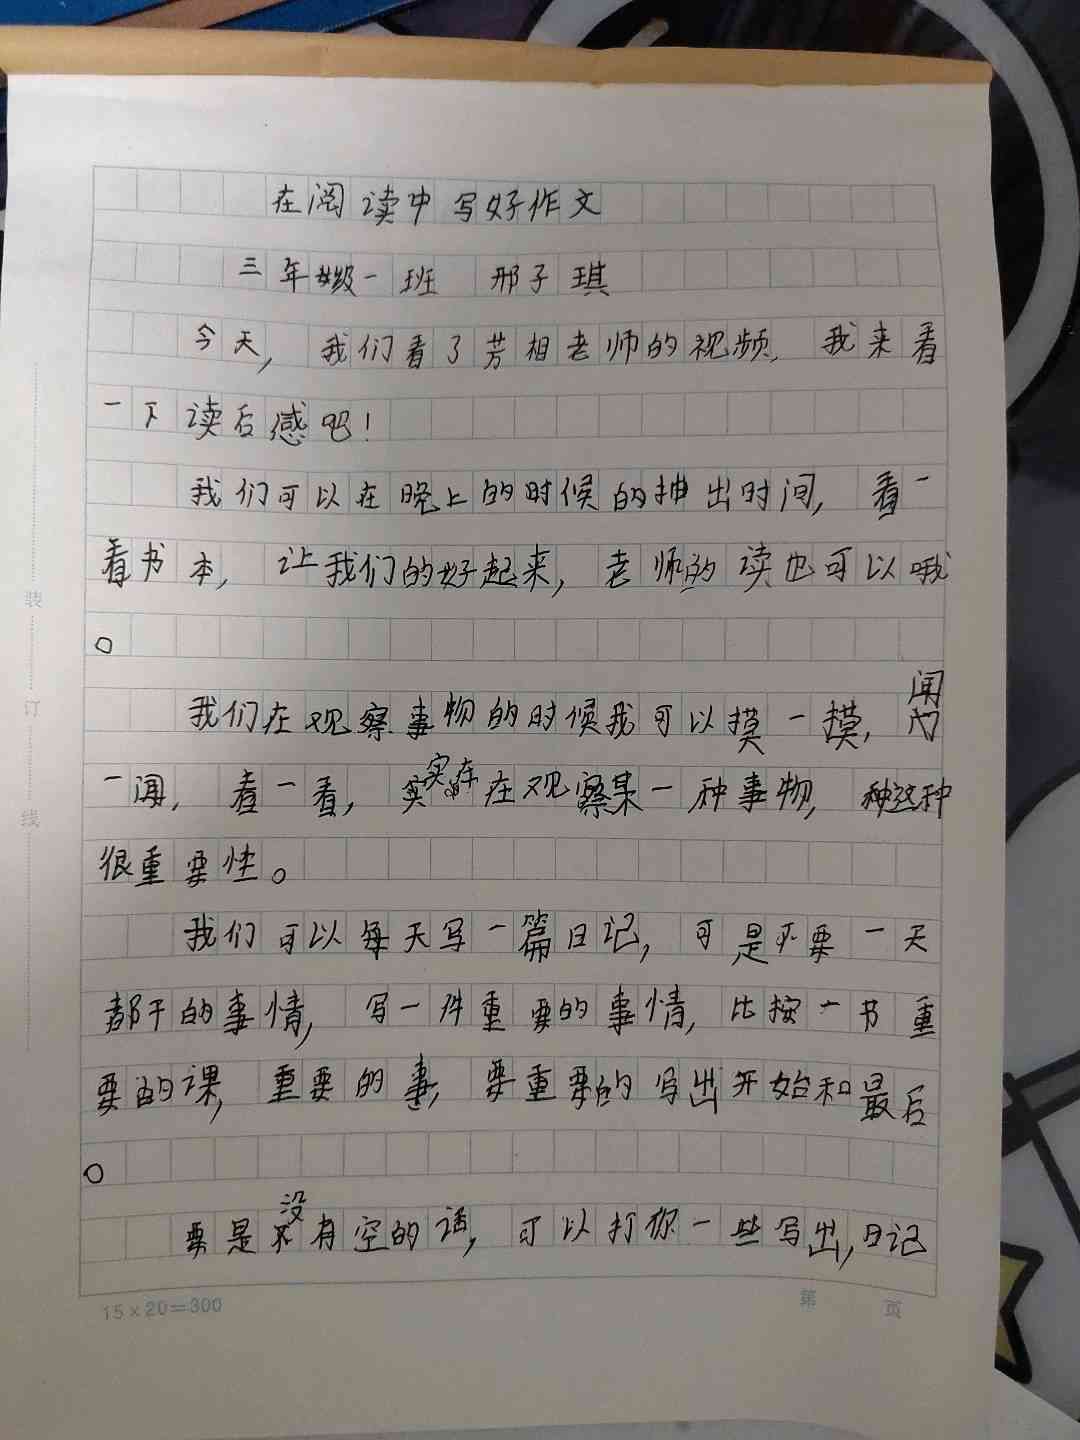 在阅读中写好作文
三年级一班 邢子琪
今天，我们看了芳相老师的视频，我来看
一下读后感吧！
我们可以在晚上的时候的抽出时间，看一
看书本，让我们的好起来，老师的读也可以哦
。
我们在观察事物的时候我可以摸一摸，闻
一闻，看一看，实在在观察某一种事物，种这种
很重要性。
我们可以每天写一篇日记，可是不要一天
都干的事情，写一件重要的事情，比按一书重
要的课，重要的事，要重要的写出开始和最后
。
要是没有空的话，可以打你一些写出，日记
15×20=300
第 页
装
订
线